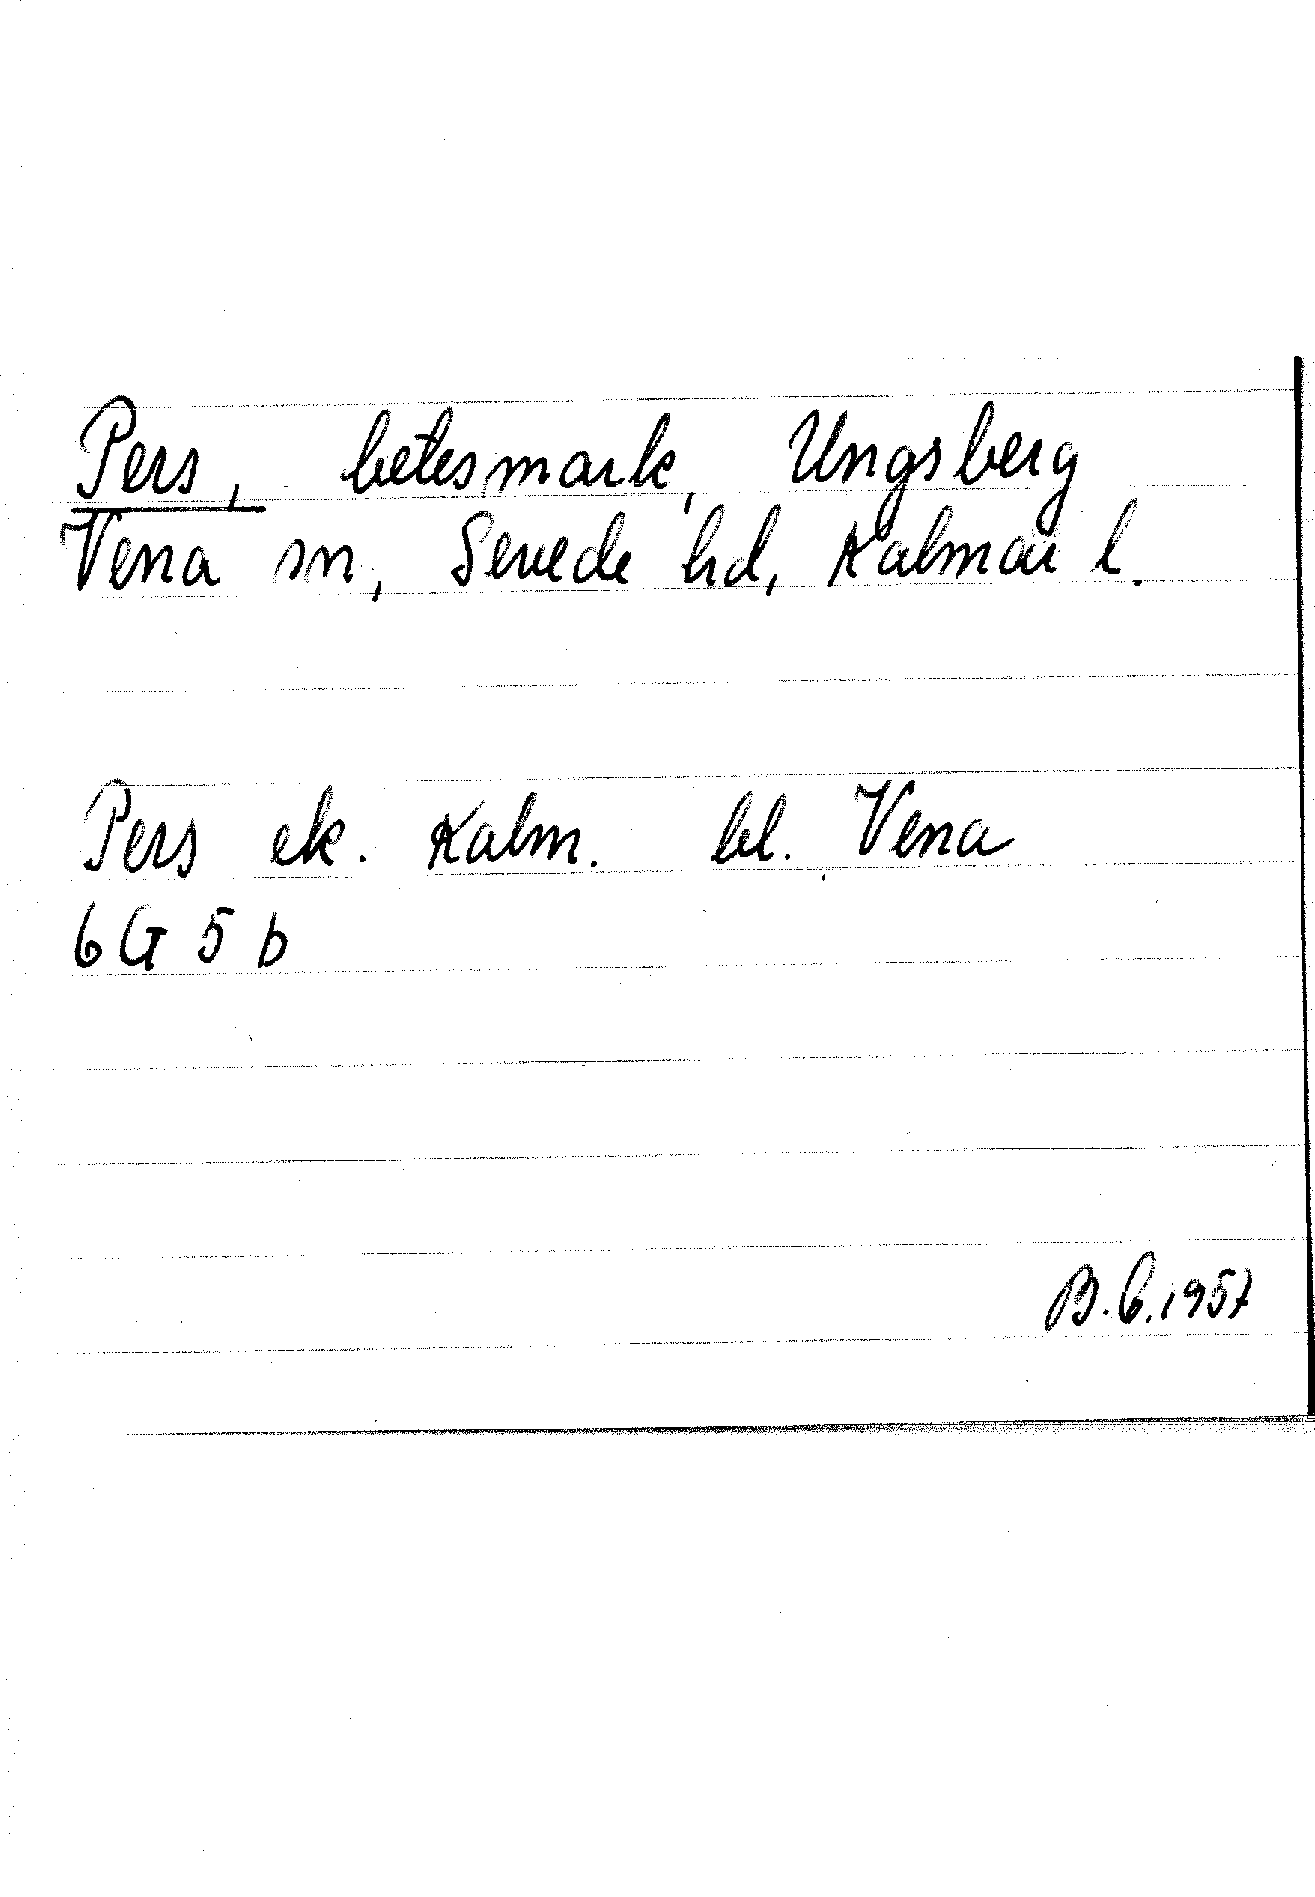 Pers, betesmark, Ungsberg
Vena sn, Sevede hd, Kalmar l.
Pers ek. Kalm. bl. Vena
6G 5 b
B.G.1957